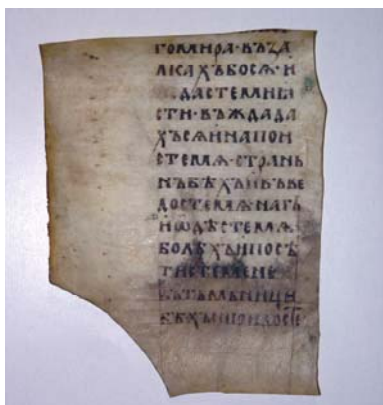 ГОМИРА·ВЪЗА
ЛКАХЪБОСѦ·И
ДАСТЕМИꙖ
СТИ·ВЪЖДАДА
ХЪСѦИНАПОИ
СТЕМѦ·СТРАНЬ
НЪБѢХЪИВЪВЕ
ДОСТЕМѦНАГЪ
ИѠДѢСТЕМѦ
БОЛѢХЪИПОСѢ
ТИСТЕМЕНЕ
ВЪТЬМЬНИЦИ